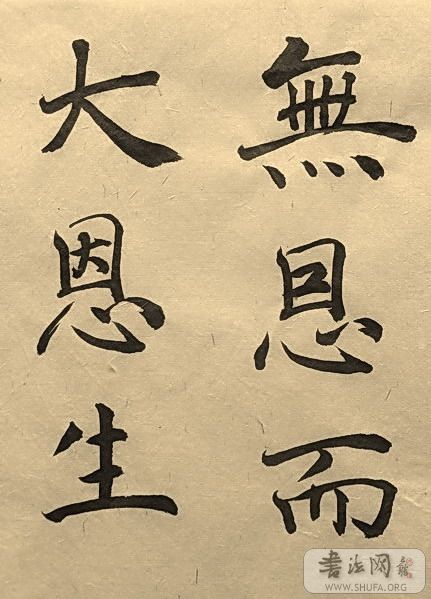 無恩而
大恩生
書法网
WWW.SHUFA.ORG